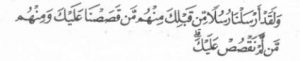 وَلَقَدْ أَرْسَلْنَا رُسُلًا مِّن قَبْلِكَ مِنْهُم مَّن قَصَصْنَا عَلَيْكَ وَمِنْهُم
مَّن لَّمْ نَقْصُصْ عَلَيْكَ ۗ